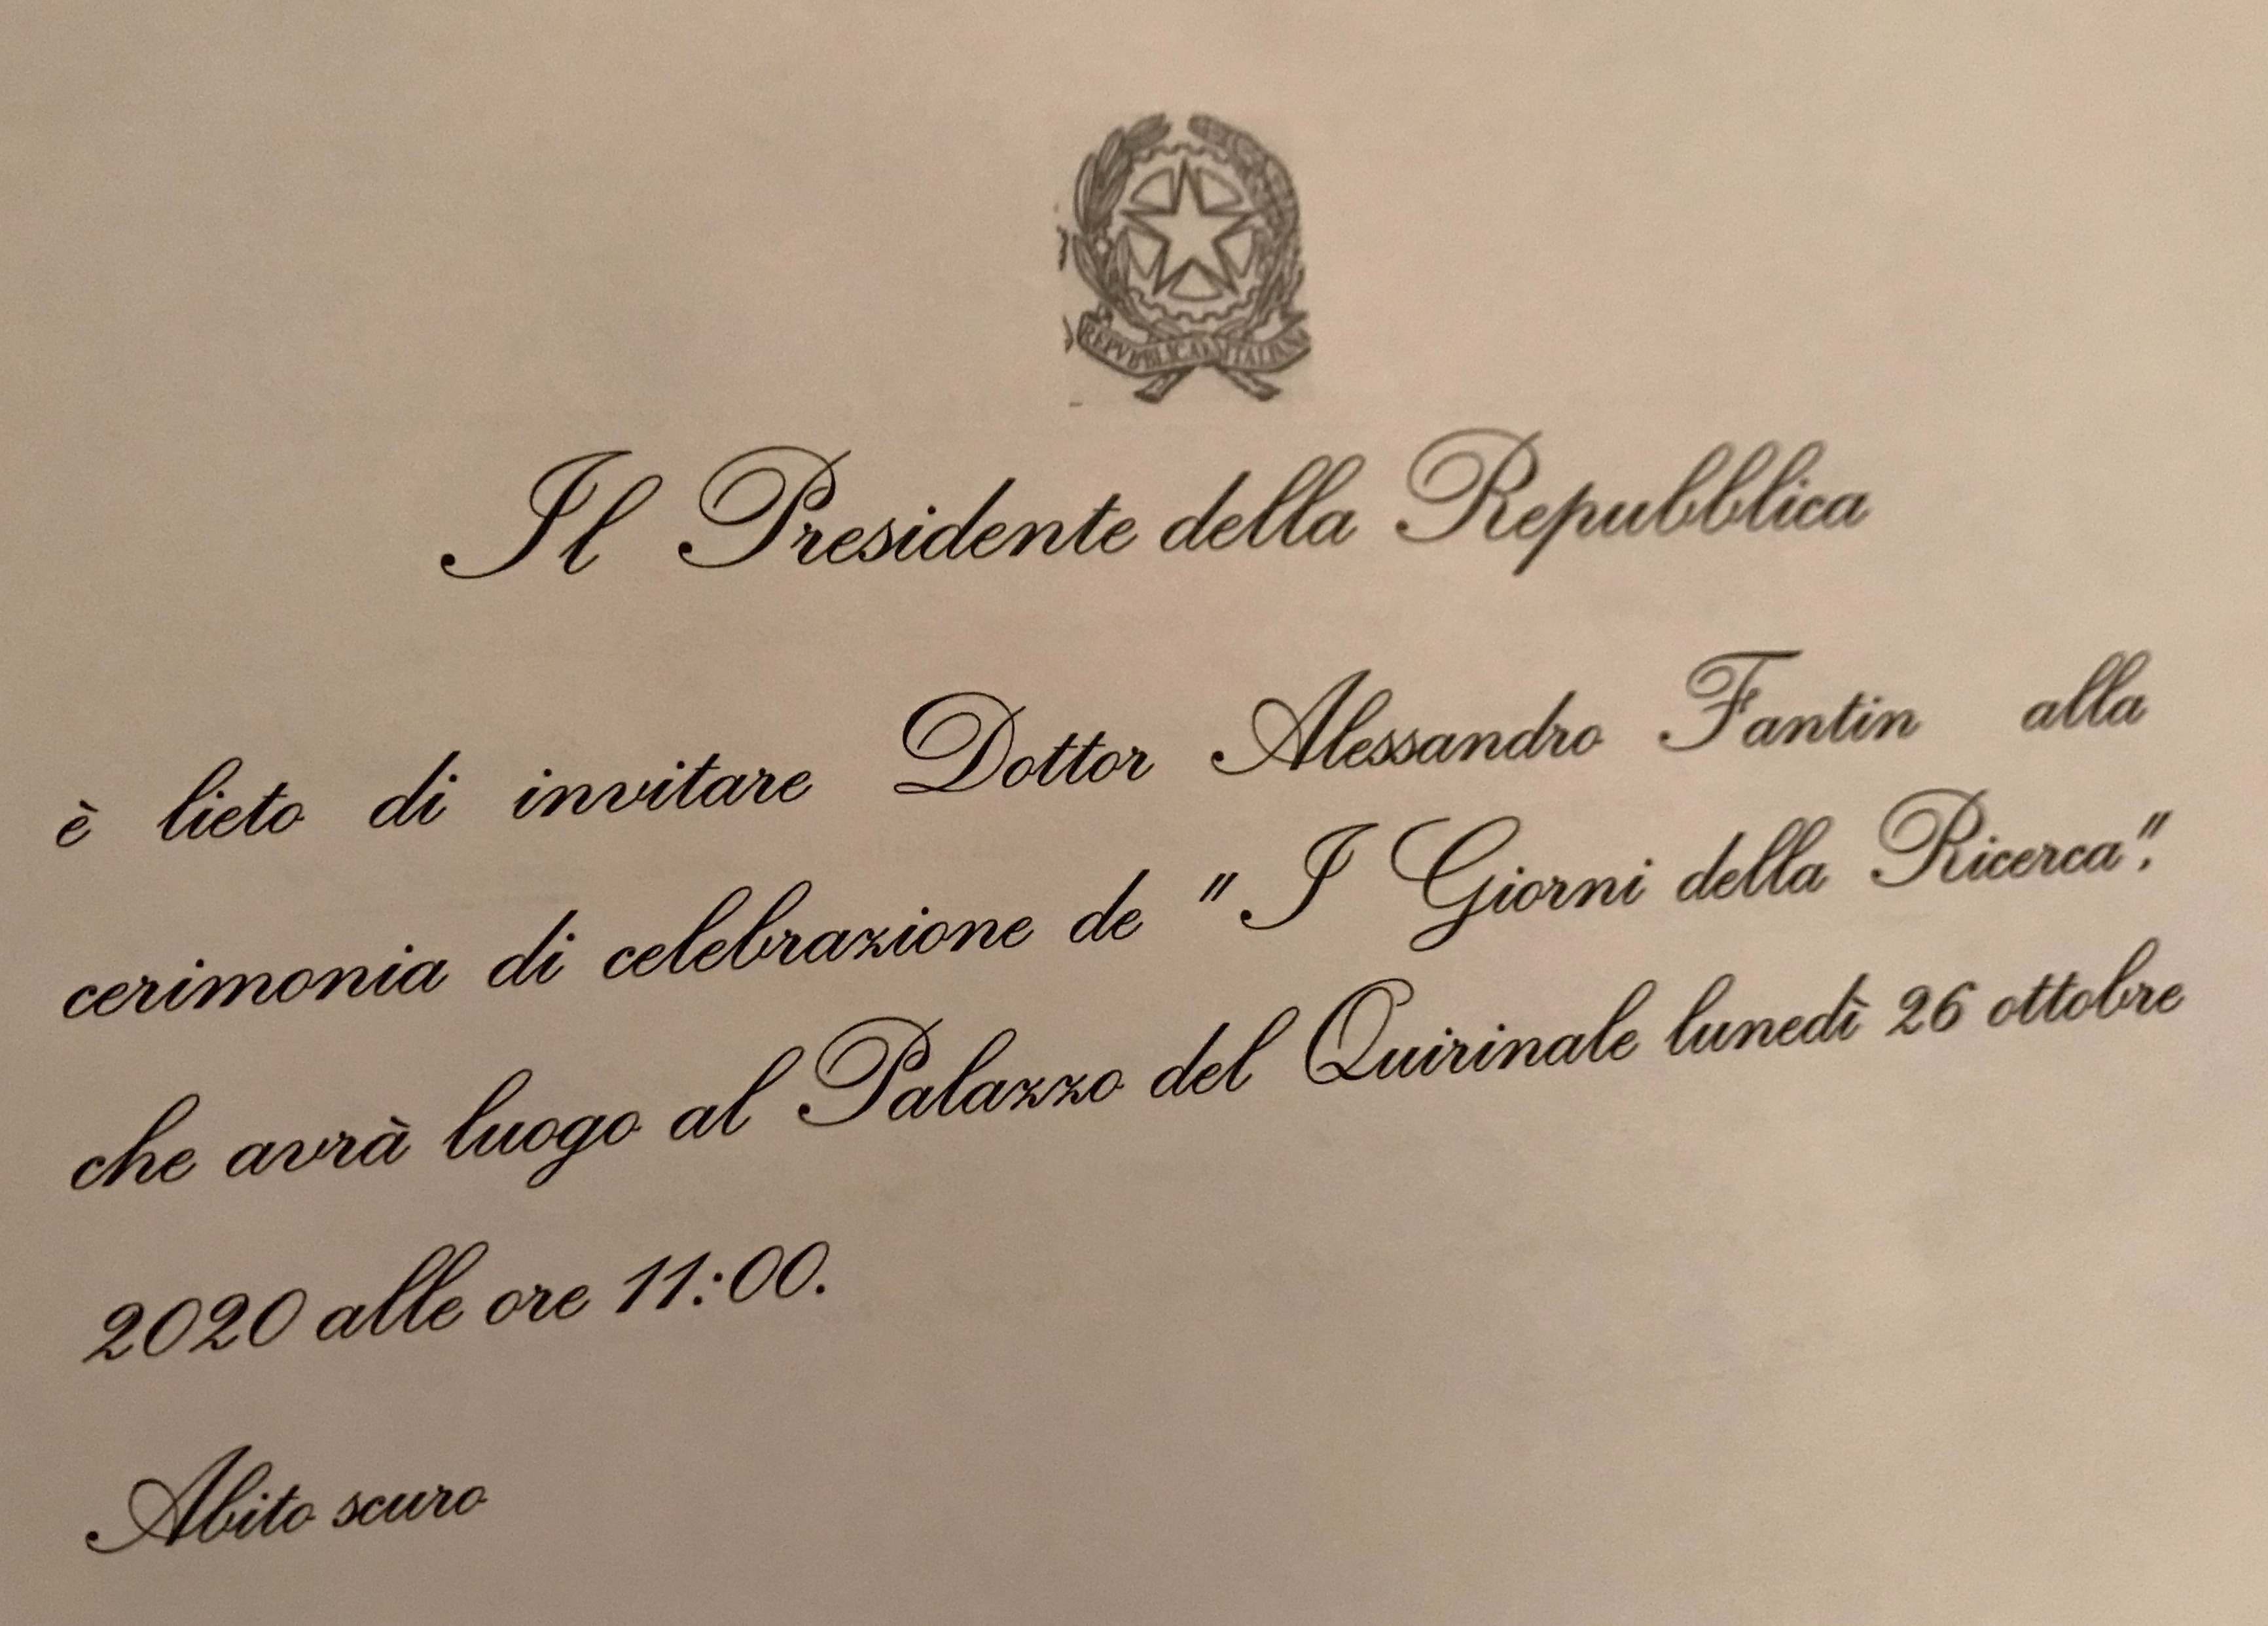 REPVBBLICA ITALIANA
Il Presidente della Repubblica
è lieto di invitare Dottor Alessandro Fantin alla
cerimonia di celebrazione de "I Giorni della Ricerca",
che avrà luogo al Palazzo del Quirinale lunedì 26 ottobre
2020 alle ore 11:00.
Abito scuro